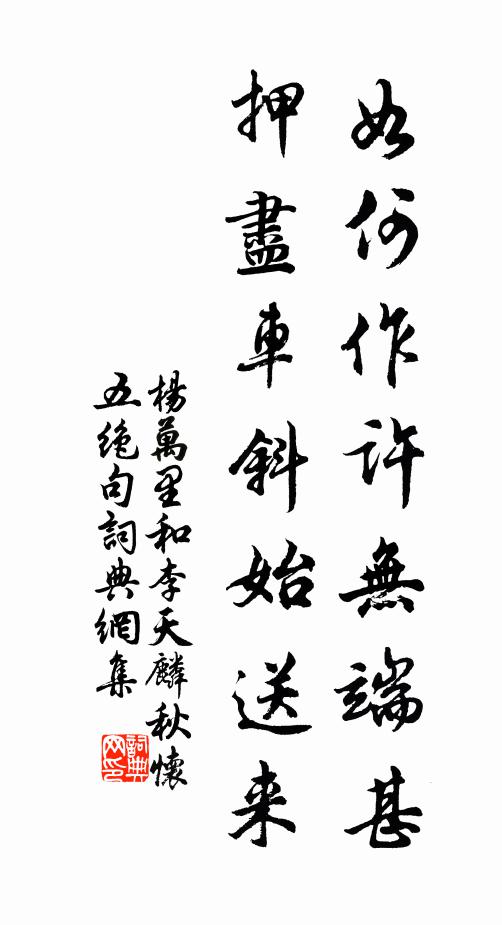 如何作許無端甚
押盡車斜始送来
楊萬里和李天麟秋懷
五絶句詞典網集
詞典網印